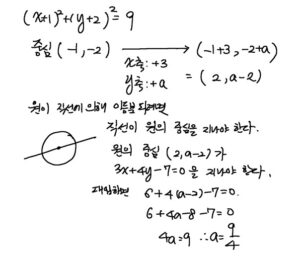 (x+1)²+(y+2)²=9
중심 (-1,-2) ⟶ (-1+3, -2+a)
x축:+3
y축:+a
= (2, a-2)
원이 직선에 의해 이등분되려면
직선이 원의 중심을 지나야 한다.
원의 중심 (2, a-2)가
3x+4y-7=0을 지나야 한다.
대입하면 6+4(a-2)-7=0.
6+4a-8-7=0
4a=9 ∴a=9/4